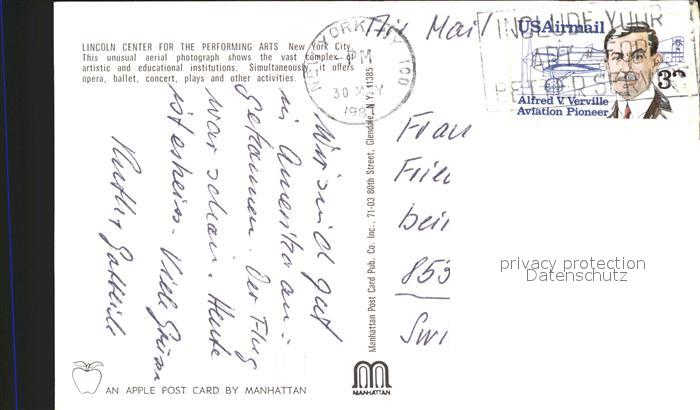 LINCOLN CENTER FOR THE PERFORMING ARTS New York City
This unusual aerial photograph shows the vast complex of
artistic and educational institutions. Simultaneously, it offers
opera, ballet, concert, plays and other activities.
Wir sind gut
in Amerika an-
gekommen. Der Flug
war schön. Heute
ist es heiss. Viele Grüsse
Manhattan Post Card Pub. Co. Inc., 71-03 80th Street, Glendale, N.Y. 11385
NEW YORK NY 100
PM
30 MAY
198
Air Mail
INCLUDE YOUR
APT
USAirmail
33
Alfred V. Verville
Aviation Pioneer
Frau
Frie
bei
Swi
privacy protection
Datenschutz
AN APPLE POST CARD BY MANHATTAN
MANHATTAN